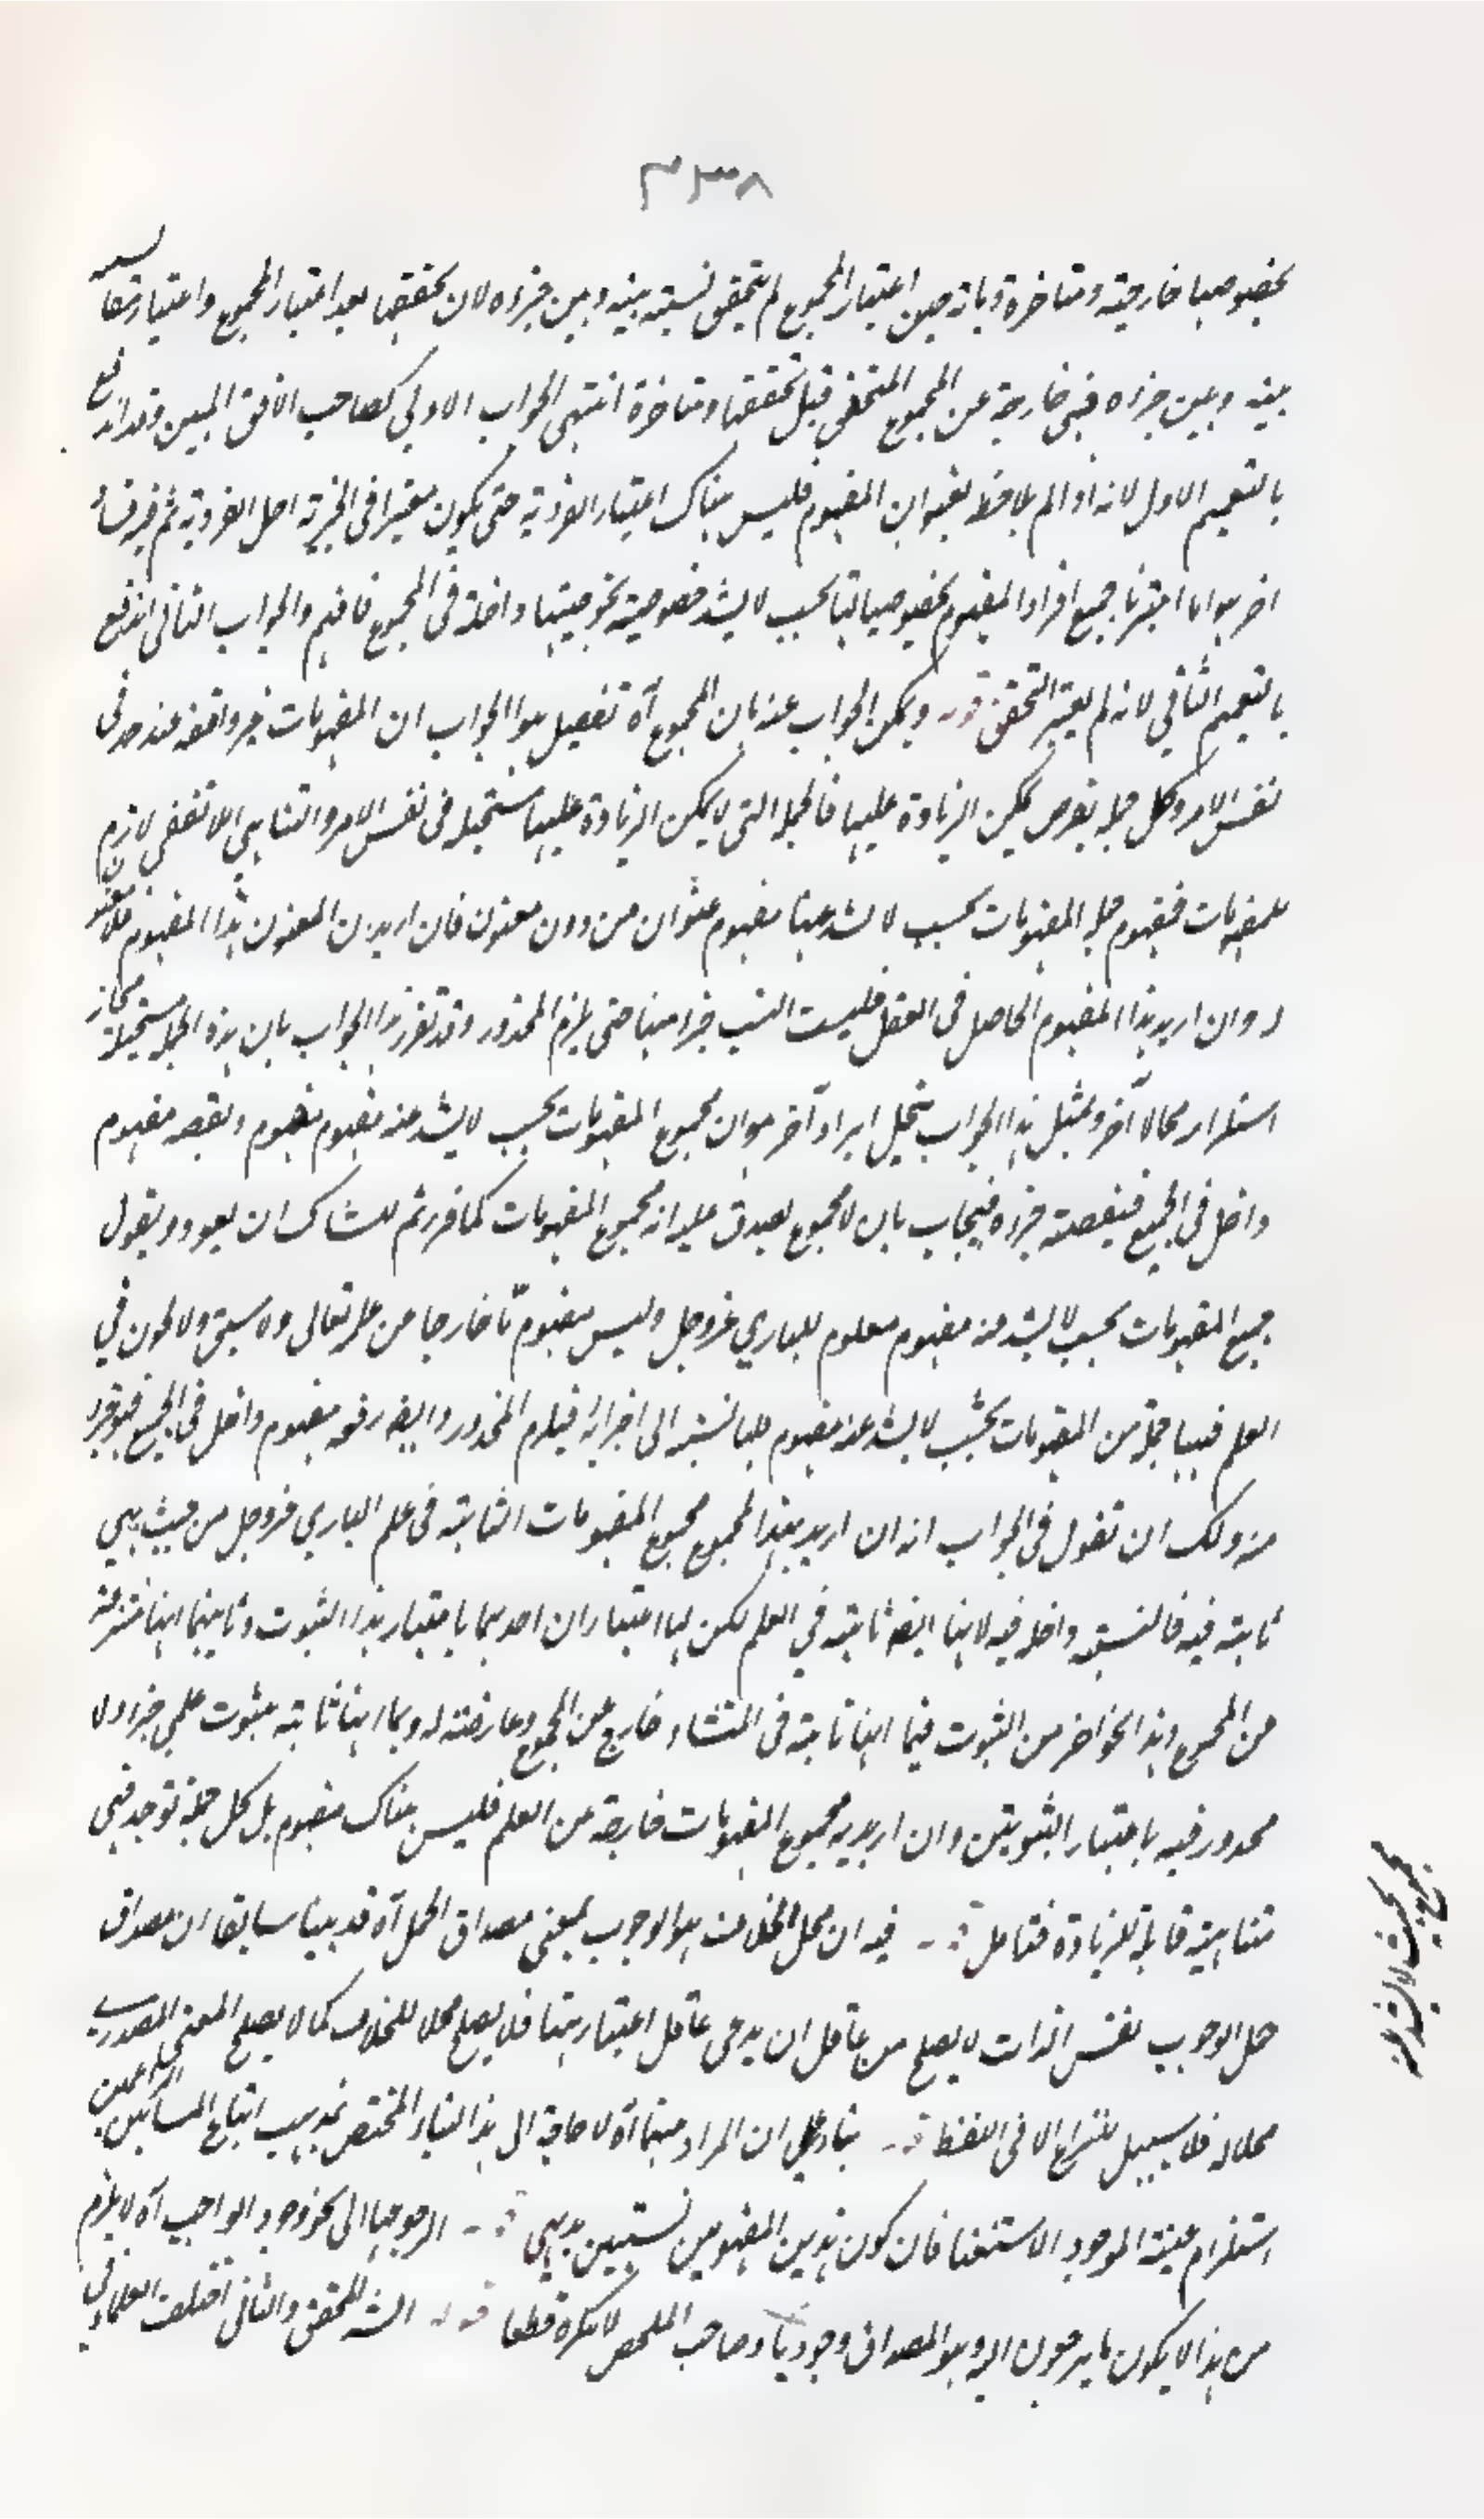 ٣٣٨
بخصوصها خارجية ومتاخرة وبانه حين اعتبار المجموع لم يتحقق نسبة بينه وبين جزءه لان تحققها بعد اعتبار المجموع واعتبار
بينه وبين جزءه فهى خارجة عن المجموع المتحقق قبل تحققها ومتاخرة انتهى الجواب الاول لصاحب الافق المبين وقد اندفع
بالتعميم الاول لانه اذا لم يلاحظ بعنوان المفهوم فليس هناك اعتبار الفردية حتى يكون معتبرا فى الجزئية اصل الفردية ثم
اخر هو انا اعتبرنا جميع افراد المفهوم بخصوصياتها بحيث لا يشذ خصوصية بخصوصيتها داخلة فى المجموع فافهم والجواب الثانى اندفع
بالتعميم الثاني لانه لم يعتبر التحقق قوله ويمكن الجواب عنه بان المجموع آه تفصيل هذا الجواب ان المفهومات غير واقفة عند حد في
نفس الامر وكل جملة يفرض يمكن الزيادة عليها فالجملة التى لا يمكن الزيادة عليها مستحيلة فى نفس الامر والتناهي اللاتقفي لازم
للمفهومات فمفهوم جملة المفهومات بحيث لا يشذ عنها مفهوم عنوان من دون معنون فان اريد ان المعنون بهذا المفهوم
وان اريد هذا المفهوم الحاصل فى العقل فليست النسب جزء منها حتى يلزم المحذور وقد تقرر هذا الجواب بان هذه الجملة مستحيلة فجاز
استلزامه محالا آخر وبمثل هذا الجواب ينحل ايراد آخر هو ان مجموع المفهومات بحيث لا يشذ عنه مفهوم مفهوم ونقيضه مفهوم
داخل فى الجميع فنقيضه جزءه فيجاب بان لا مجموع يصدق عليه انه مجموع المفهومات كما قرر ثم للشاك ان يعود ويقول
جميع المفهومات بحيث لا يشذ منه مفهوم معلوم للباري عز وجل وليس مفهوم ما خارجا من علمه تعالى ولا سبق ولا لحوق في
العلم فيها جملة من المفهومات بحيث لا يشذ عنه مفهوم لها نسبة الى اجزائها فيلزم المحذور وايضا رفعه مفهوم داخل فى الجميع فهو جزء
منه ولك ان تقول فى الجواب انه ان اريد بهذا المجموع مجموع المفهومات الثابتة فى علم الباري عز وجل من حيث هي
ثابتة فيه فالنسبة داخلة فيه لانها ايضا ثابتة في العلم لكن لها اعتباران احدهما باعتبار هذا الثبوت وثانيهما انها منتزعة
من المجموع وهذا نحو اخر من الثبوت فبما انها ثابتة فى المنشاء خارج عن المجموع وعارضة له وبما انها ثابتة بثبوت علمي جزء ولا
محذور فيه باعتبار الثبوتين وان اريد به مجموع المفهومات خارجة عن العلم فليس هناك مفهوم بل كل جملة توجد فهى
متناهية قابلة للزيادة فتامل قوله فيه ان محل الخلاف هو الوجوب بمعنى مصداق الحمل آه قد بينا سابقا ان مصداق
حمل الوجوب نفس الذات لا يصلح من عاقل ان يدعى عاقل اعتباريتها فلا يصلح محلا للخلاف كما لا يصلح المعنى المصدرى
محلا له فلا سبيل للنزاع الا فى اللفظ قوله بناء على ان المراد منها آه لا حاجة الى هذا البناء المختص بمذهب اتباع المشائين
استلزام عينية الموجود الاستغناء فان كون هذين المفهومين نسبتين بديهى قوله الرجوعها الى نحو وجود الواجب آه لا يلزم
من هذا الا يكون ما يرجعون اليه وهو المصداق وجوديا وصاحب الملخص لا ينكره قطعا قوله الشه المحقق والثانى اختلف العلماء في
مجموع بحيث لا يشذ عنه